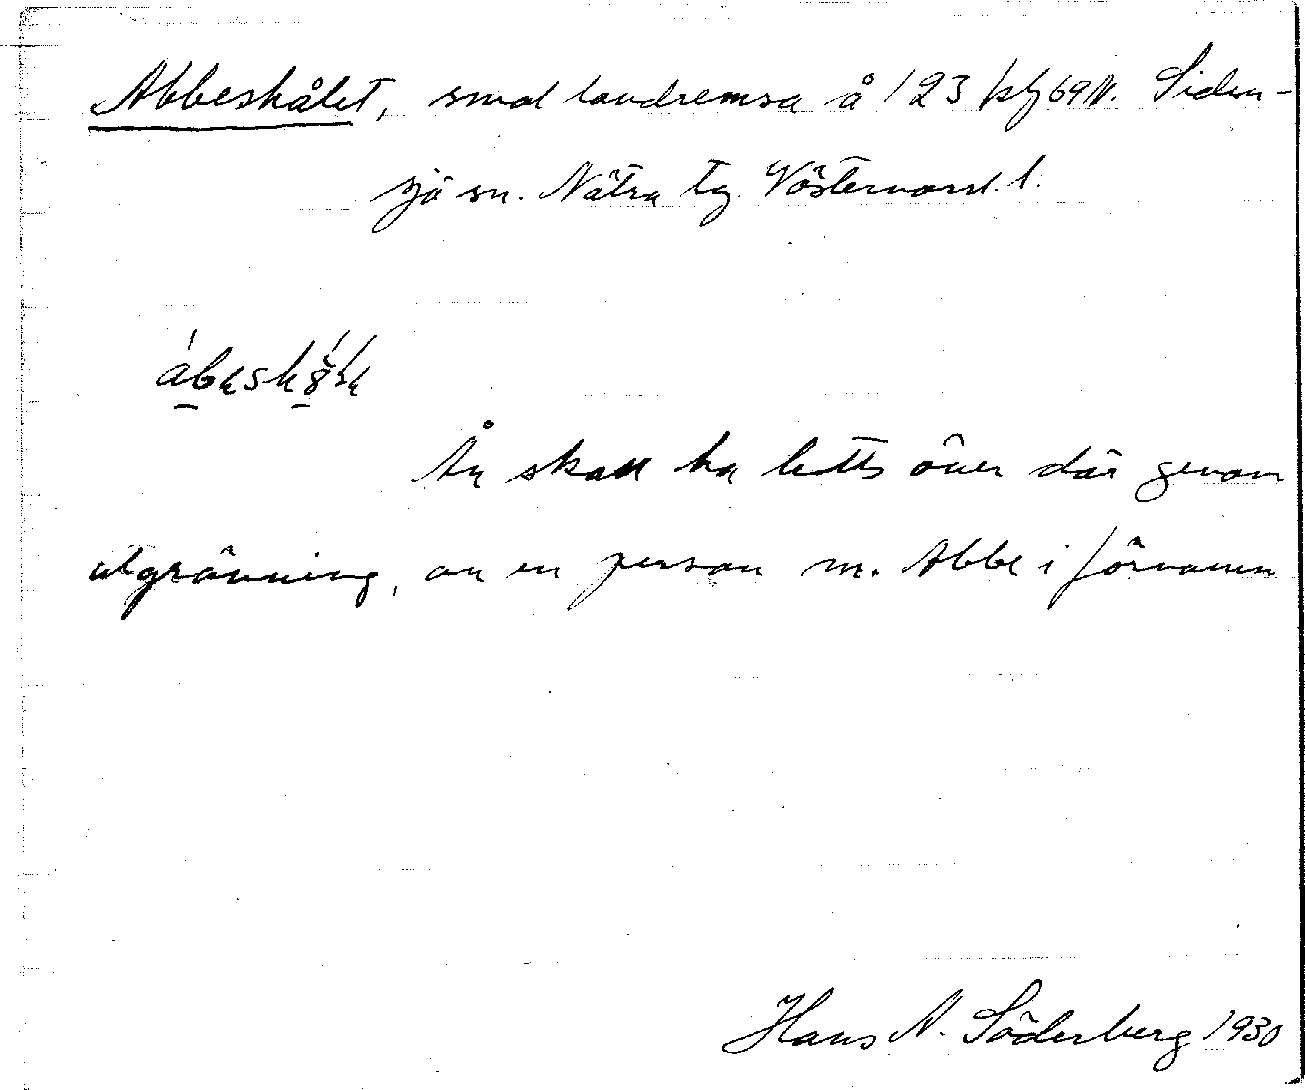 Abbeskålet, smal landremsa å 123 kbl 69 N. Siden-
sjö sn. Nätra tg. Västernorrl. l.
Ån skall ha letts över där genom
utgrävning, av en person m. Abbe i förnamn
Hans N. Söderberg 1930